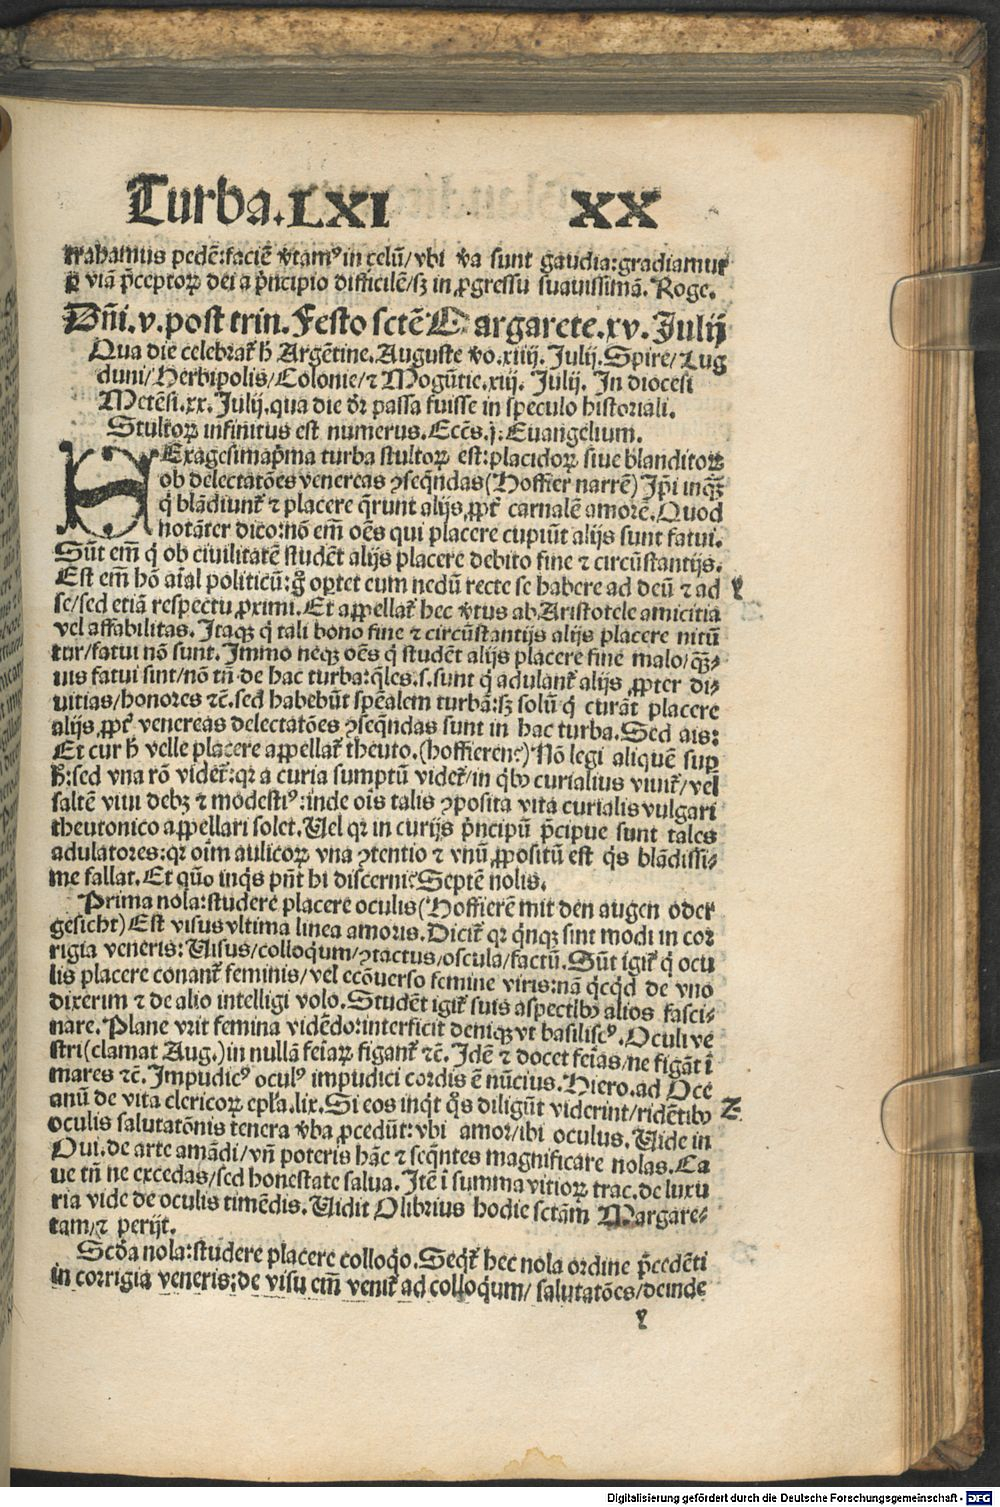 Turba. LXI XX
trahamus pedē:faciē v̄tamꝰ in celū/vbi v̄a sunt gaudia:gradiamur
ꝑ viā p̄ceptoꝝ dei a p̄ncipio difficilē/sꝫ in ꝓgressu suauissimā. Roge.
Dn̄i.v.post trin. Festo sctē Margarete.xv. Julij
Qua die celebrat᷑ h̄ Argētine. Auguste v̄o.xiiij. Julij. Spire/Lug
duni/Herbipolis/Colonie/⁊ Mogūtie.xiij. Julij. In diocesi
Metēsi.xx. Julij.qua die dr̄ passa fuisse in speculo historiali.
Stultoꝝ infinitus est numerus. Eccs̄.j: Euangelium.
SExagesimap̄ma turba stultoꝝ est:placidoꝝ siue blanditoꝝ
ob delectatōes venereas ꝯseq̄ndas(Hoffier narrē) Ip̄i inqꝫ
q̇ blādiunt᷑ ⁊ placere q̄runt alijs ꝓpt᷑ carnalē amorē. Quod
notāter dico:nō em̄ oēs qui placere cupiūt alijs sunt fatui.
Sūt em̄ q̇ ob ciuilitatē studēt alijs placere debito fine ⁊ circūstantijs.
Est em̄ hō aīal politicū:g̊ oꝑtet eum nedū recte se habere ad deū ⁊ ad Y
se/sed etiā respectu ꝓximi. Et appellat᷑ hec v̄tus ab Aristotele amicitia
vel affabilitas. Itaqꝫ q̇ tali bono fine ⁊ circūstantijs alijs placere nitū
tur/fatui nō sunt. Immo neqꝫ oēs q̇ studēt alijs placere fine malo/qꝫ⸗
uis fatui sint/nō tn̄ de hac turba:q̄les.s.sunt q̇ adulant᷑ alijs ꝓpter di⸗
uitias/honores ⁊c̄.sed habebūt spēalem turbā:sꝫ solū q̇ curāt placere
alijs ꝓpt᷑ venereas delectatōes ꝯseq̄ndas sunt in hac turba. Sed ais:
Et cur h̄ velle placere appellat᷑ theuto.(hoffierene) Nō legi aliquē suꝑ
h̄:sed vna rō videt᷑:qr a curia sumptū videt᷑/in q̇bꝰ curialius viuit᷑/vel
saltē viui debꝫ ⁊ modestiꝰ:inde oīs talis ꝯposita vita curialis vulgari
theutonico appellari solet. Vel qr in curijs p̄ncipū p̄cipue sunt tales
adulatores:qr oīm aulicoꝝ vna ꝯtentio ⁊ vnū ꝓpositū est q̇s blādissi⸗
me fallat. Et quō inq̇s pn̄t hi discerni: Septē nolis.
Prima nola:studere placere oculis(Hoffierē mit den augen oder
gesicht) Est visus vltima linea amoris. Dicit᷑ qr q̇nqꝫ sint modi in cor
rigia veneris: Visus/colloq̇um/ꝯtactus/oscula/factū. Sūt igit᷑ q̇ ocu
lis placere conant᷑ feminis/vel ecōuerso femine viris:nā q̇cq̇d de vno
dixerim ⁊ de alio intelligi volo. Studēt igit᷑ suis aspectibꝰ alios fasci⸗
nare. Plane vrit femina vidēdo:interficit deniqꝫ vt basiliscꝰ. Oculi ve
stri(clamat Aug.)in nullā feīaꝝ figant᷑ ⁊c̄. Idē ⁊ docet feīas/ne figāt ī
mares ⁊c̄. Impudicꝰ oculꝰ impudici cordis ē nūcius. Hiero.ad Oce
anū de vita clericoꝝ epl̄a.lix. Si eos inq̇t q̊s diligūt viderint/ridētibꝰ Z
oculis salutatōnis tenera v̄ba ꝓcedūt:vbi amor/ibi oculus. Vide in
Oui.de arte amādi/vn̄ poteris hāc ⁊ seq̄ntes magnificare nolas. Ca
ue tn̄ ne excedas/sed honestate salua. Itē ī summa vitioꝝ trac.de luxu
ria vide de oculis timēdis. Vidit Olibrius hodie sctām Margare⸗
tam/⁊ perijt.
Scd̄a nola:studere placere colloq̇o. Seqt᷑ hec nola ordine p̄cedēti
in corrigia veneris:de visu em̄ venit᷑ ad colloq̇um/ salutatōes/deinde
Y
Digitalisierung gefördert durch die Deutsche Forschungsgemeinschaft - DFG